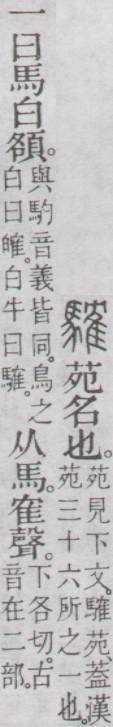 䮤苑名也。苑見下文。䮤苑、蓋漢苑三十六所之一也。
一曰馬白頟。與馰音義皆同。鳥之白曰㿥。白牛曰㹊。从馬隺聲。下各切。古音在二部。